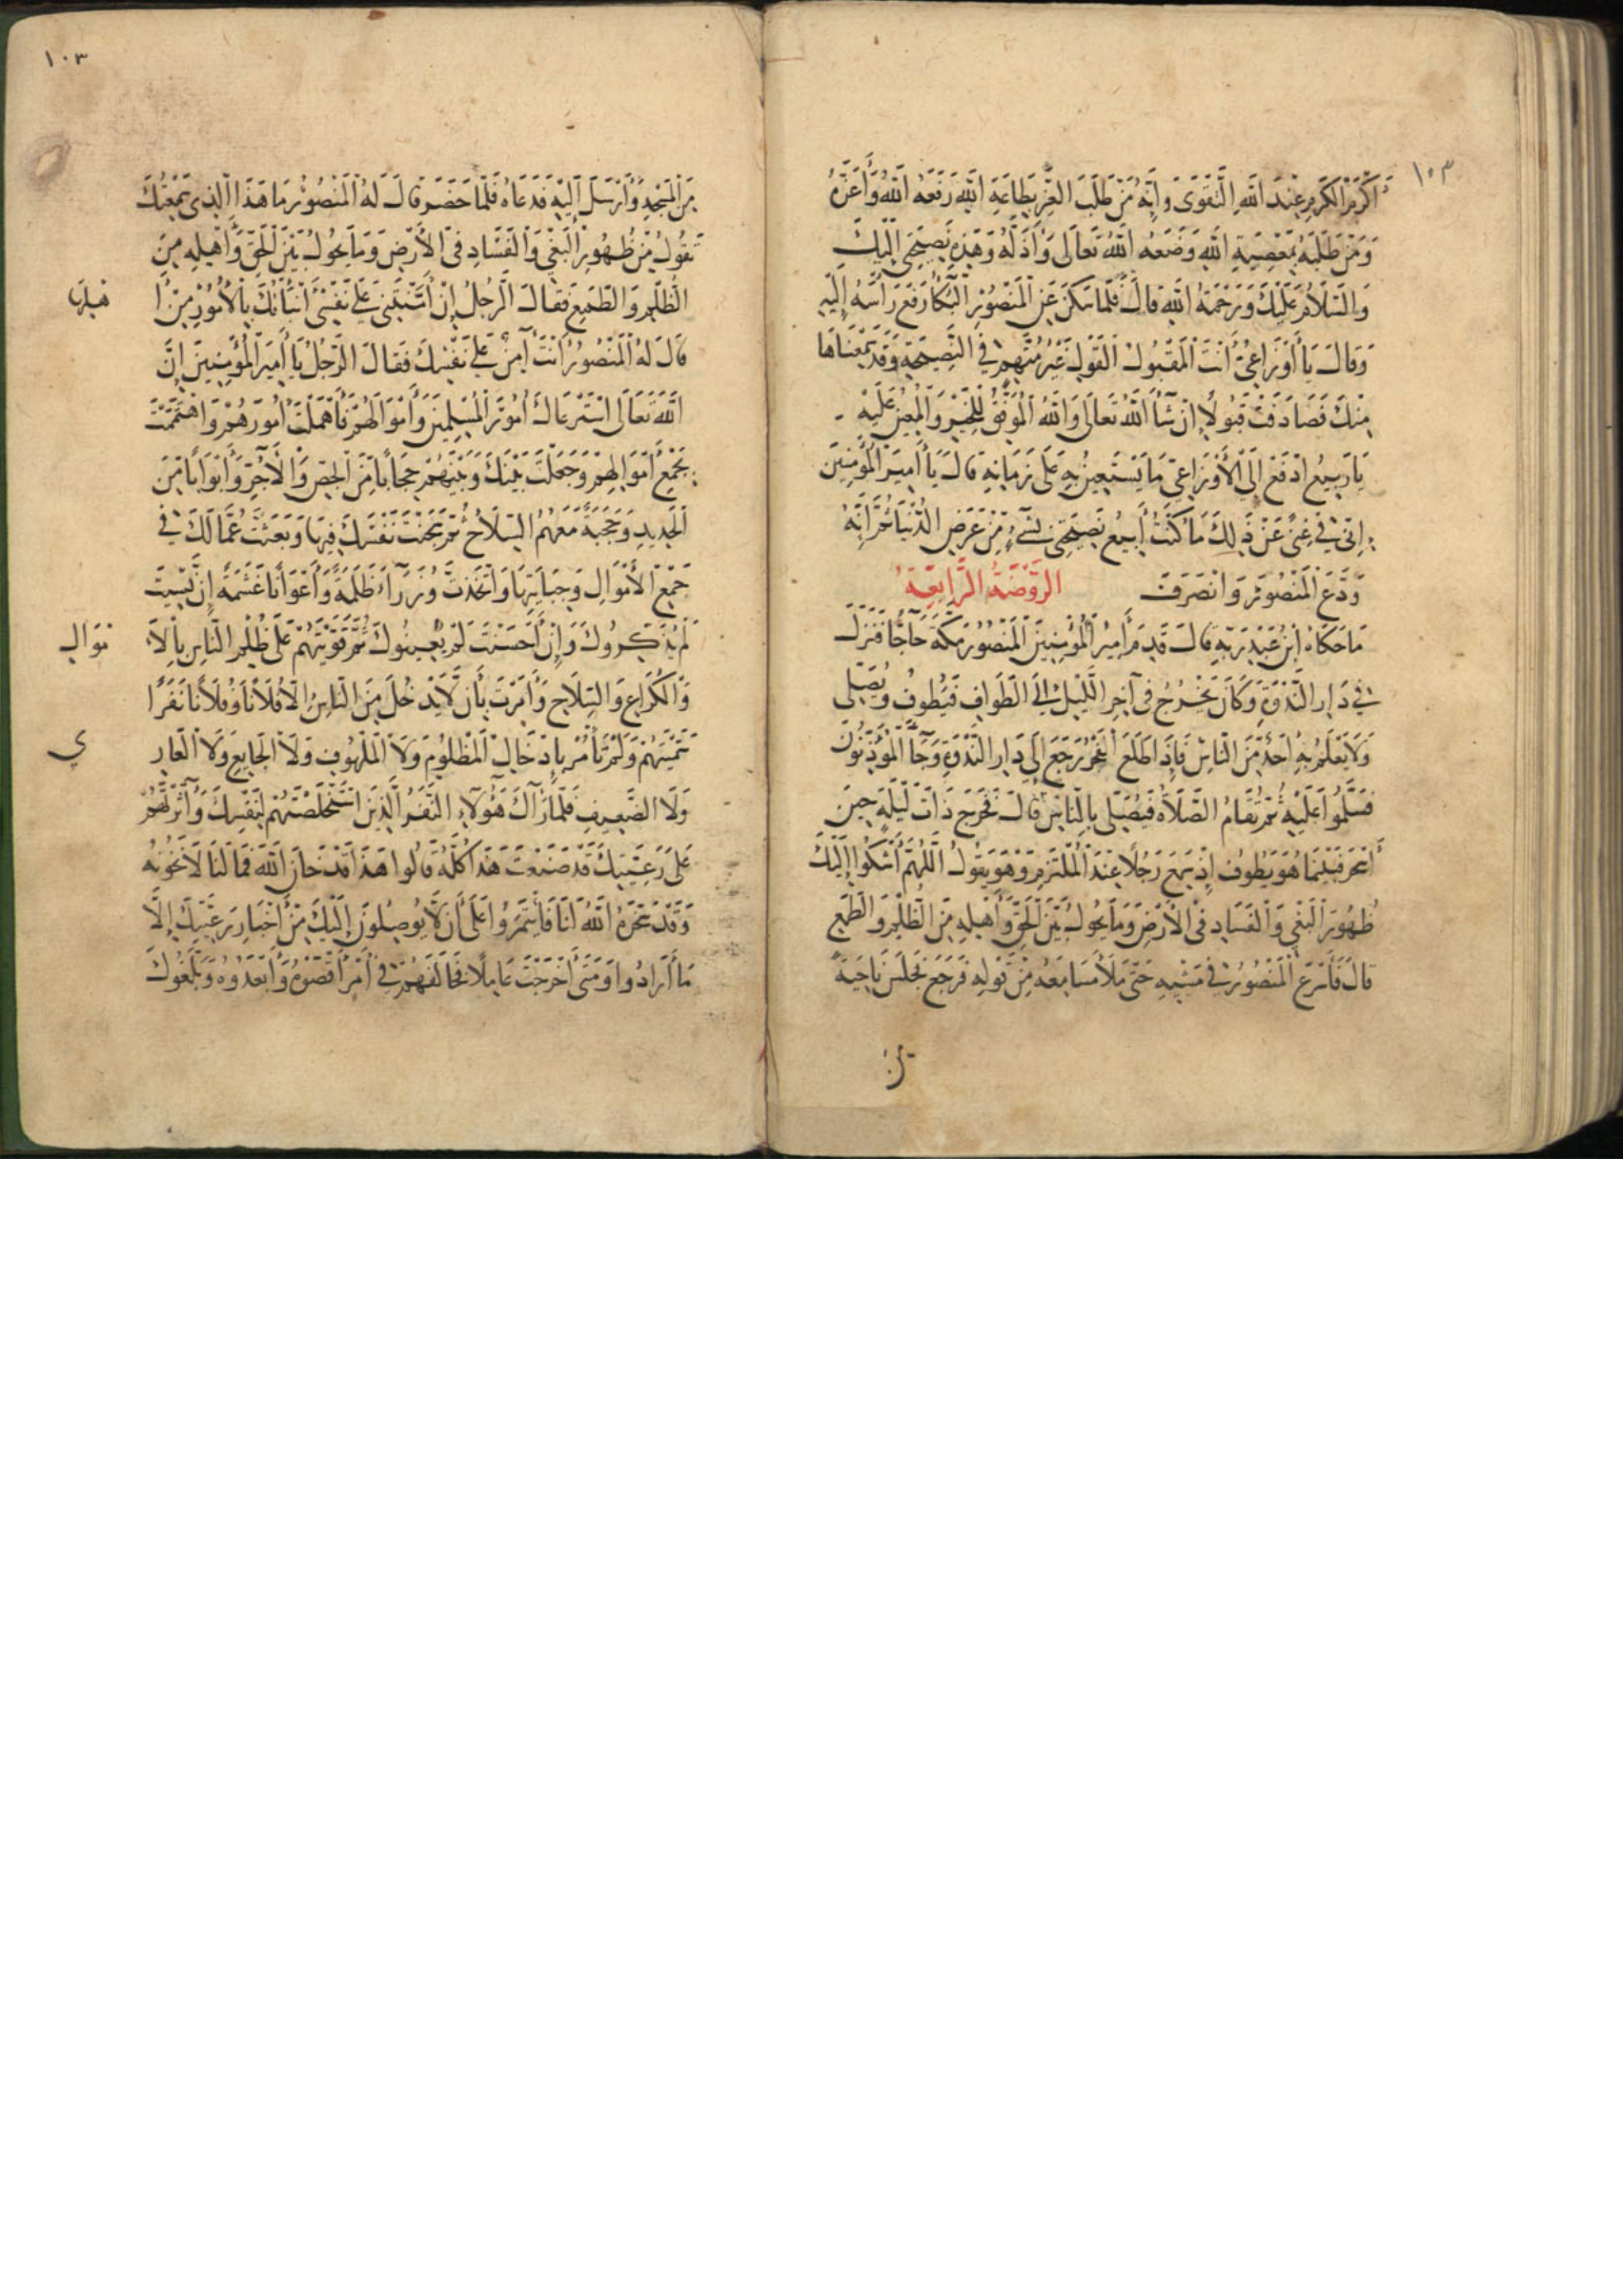 ١٠٣
أَكْرَمَ الكَرَمِ عِنْدَ اللهِ التَّقْوَى وَإِنَّهُ مَنْ طَلَبَ العِزَّ بِطَاعَةِ اللهِ رَفَعَهُ اللهُ وَأَعَزَّهُ
وَمَنْ طَلَبَهُ بِمَعْصِيَةِ اللهِ وَضَعَهُ اللهُ تَعَالَى وَأَذَلَّهُ وَهَذِهِ نَصِيحَتِي إِلَيْكَ
وَالسَّلَامُ عَلَيْكَ وَرَحْمَةُ اللهِ قَالَ فَلَمَّا سَكَنَ عَنِ الْمَنْصُورِ الْبُكَا رَفَعَ رَأْسَهُ إِلَيْهِ
وَقَالَ يَا أَوْزَاعِيُّ أَنْتَ الْمَقْبُولُ الْقَوْلِ غَيْرُ مُتَّهَمٍ فِي النَّصِيحَةِ وَقَدْ سَمِعْنَاهَا
مِنْكَ فَصَادَفَتْ قَبُولًا إِنْ شَاءَ اللهُ تَعَالَى وَاللهُ الْمُوَفِّقُ لِلْخَيْرِ وَالْمُعِينُ عَلَيْهِ
يَا رَبِيعُ ادْفَعْ إِلَى الْأَوْزَاعِيِّ مَا يَسْتَعِينُ بِهِ عَلَى زَمَانِهِ قَالَ يَا أَمِيرَ الْمُؤْمِنِينَ
إِنِّي فِي غِنًى عَنْ ذَلِكَ مَا كُنْتُ أَبِيعُ نَصِيحَتِي بِشَيْءٍ مِنْ عَرَضِ الدُّنْيَا ثُمَّ إِنَّهُ
وَدَّعَ الْمَنْصُورَ وَانْصَرَفَ الرَّوْضَةُ الرَّابِعَةُ
مَا حَكَاهُ ابْنُ عَبْدِ رَبِّهِ قَالَ قَدِمَ أَمِيرُ الْمُؤْمِنِينَ الْمَنْصُورُ مَكَّةَ حَاجًّا فَنَزَلَ
فِي دَارِ النَّدْوَةِ وَكَانَ يَخْرُجُ فِي آخِرِ اللَّيْلِ إِلَى الطَّوَافِ فَيَطُوفُ وَيُصَلِّي
وَلَا يَعْلَمُ بِهِ أَحَدٌ مِنَ النَّاسِ فَإِذَا طَلَعَ الْفَجْرُ رَجَعَ إِلَى دَارِ النَّدْوَةِ وَجَاءَ الْمُؤَذِّنُونَ
فَسَلَّمُوا عَلَيْهِ ثُمَّ تُقَامُ الصَّلَاةُ فَيُصَلِّي بِالنَّاسِ قَالَ فَخَرَجَ ذَاتَ لَيْلَةٍ حِينَ
أَسْحَرَ فَبَيْنَمَا هُوَ يَطُوفُ إِذْ سَمِعَ رَجُلًا عِنْدَ الْمُلْتَزَمِ وَهُوَ يَقُولُ اللَّهُمَّ أَشْكُوا إِلَيْكَ
ظُهُورَ الْبَغْيِ وَالْفَسَادِ فِي الْأَرْضِ وَمَا يَحُولُ بَيْنَ الْحَقِّ وَأَهْلِهِ مِنَ الظُّلْمِ وَالطَّمَعِ
قَالَ فَأَسْرَعَ الْمَنْصُورُ فِي مَشْيِهِ حَتَّى مَلَأَ مَسَامِعَهُ مِنْ قَوْلِهِ فَرَجَعَ فَجَلَسَ نَاحِيَةً
١٠٣
مِنَ الْمَسْجِدِ وَأَرْسَلَ إِلَيْهِ فَدَعَاهُ فَلَمَّا حَضَرَ قَالَ لَهُ الْمَنْصُورُ مَا هَذَا الَّذِي سَمِعْتُكَ
تَقُولُ مِنْ ظُهُورِ الْبَغْيِ وَالْفَسَادِ فِي الْأَرْضِ وَمَا يَحُولُ بَيْنَ الْحَقِّ وَأَهْلِهِ مِنَ
الظُّلْمِ وَالطَّمَعِ فَقَالَ الرَّجُلُ إِنْ أَمَّنْتَنِي عَلَى نَفْسِي أَنْبَأْتُكَ بِالْأُمُورِ مِنْ أ
قَالَ لَهُ الْمَنْصُورُ أَنْتَ آمِنٌ عَلَى نَفْسِكَ فَقَالَ الرَّجُلُ يَا أَمِيرَ الْمُؤْمِنِينَ إِنَّ
اللهَ تَعَالَى اسْتَرْعَاكَ أُمُورَ الْمُسْلِمِينَ وَأَمْوَالَهُمْ فَأَهْمَلْتَ أُمُورَهُمْ وَاهْتَمَمْتَ
بِجَمْعِ أَمْوَالِهِمْ وَجَعَلْتَ بَيْنَكَ وَبَيْنَهُمْ حِجَابًا مِنَ الْجِصِّ وَالْآجُرِّ وَأَبْوَابًا مِنَ
الْحَدِيدِ وَحَجَبَةً مَعَهُمُ السِّلَاحُ ثُمَّ سَجَنْتَ نَفْسَكَ فِيهَا وَبَعَثْتَ عُمَّالَكَ فِي
جَمْعِ الْأَمْوَالِ وَجِبَايَتِهَا وَاتَّخَذْتَ وُزَرَاءَ ظَلَمَةً وَأَعْوَانًا غَشَمَةً إِنْ نَسِيتَ
لَمْ يُذَكِّرُوكَ وَإِنْ أَحْسَنْتَ لَمْ يُعِينُوكَ ثُمَّ قَوَّيْتَهُمْ عَلَى ظُلْمِ النَّاسِ بِالْأَ
مْوَالِ
وَالْكُرَاعِ وَالسِّلَاحِ وَأَمَرْتَ بِأَنْ لَا يَدْخُلَ مِنَ النَّاسِ إِلَّا فُلَانًا وَفُلَانًا نَفَرًا
سَمَّيْتَهُمْ وَلَمْ تَأْمُرْ بِإِدْخَالِ الْمَظْلُومِ وَلَا الْمَلْهُوفِ وَلَا الْجَايِعِ وَلَا الْعَارِ
ي
وَلَا الضَّعِيفِ فَلَمَّا رَآكَ هَؤُلَاءِ النَّفَرُ الَّذِينَ اسْتَخْلَصْتَهُمْ لِنَفْسِكَ وَآثَرْتَهُمْ
عَلَى رَعِيَّتِكَ قَدْ صَنَعْتَ هَذَا كُلَّهُ قَالُوا هَذَا قَدْ خَانَ اللهَ فَمَا لَنَا لَا نَخُونُهُ
وَقَدْ سَخَّرَهُ اللهُ لَنَا فَأْتَمَرُوا عَلَى أَنْ لَا يُوصِلُونَ إِلَيْكَ مِنْ أَخْبَارِ رَعِيَّتِكَ إِلَّا
مَا أَرَادُوا وَمَتَى أَخْرَجْتَ عَامِلًا فَخَالَفَهُمْ فِي أَمْرٍ أَقْصَوْهُ وَأَبْعَدُوهُ وَبَلَّغُوكَ